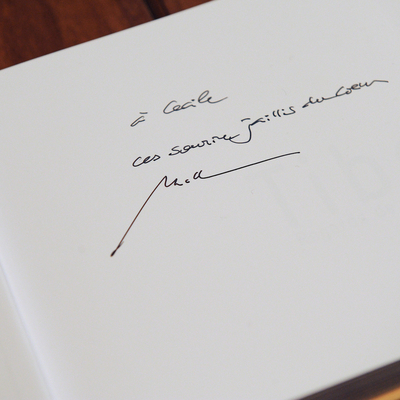 à Cecile
ces sourires jaillis du Coeur